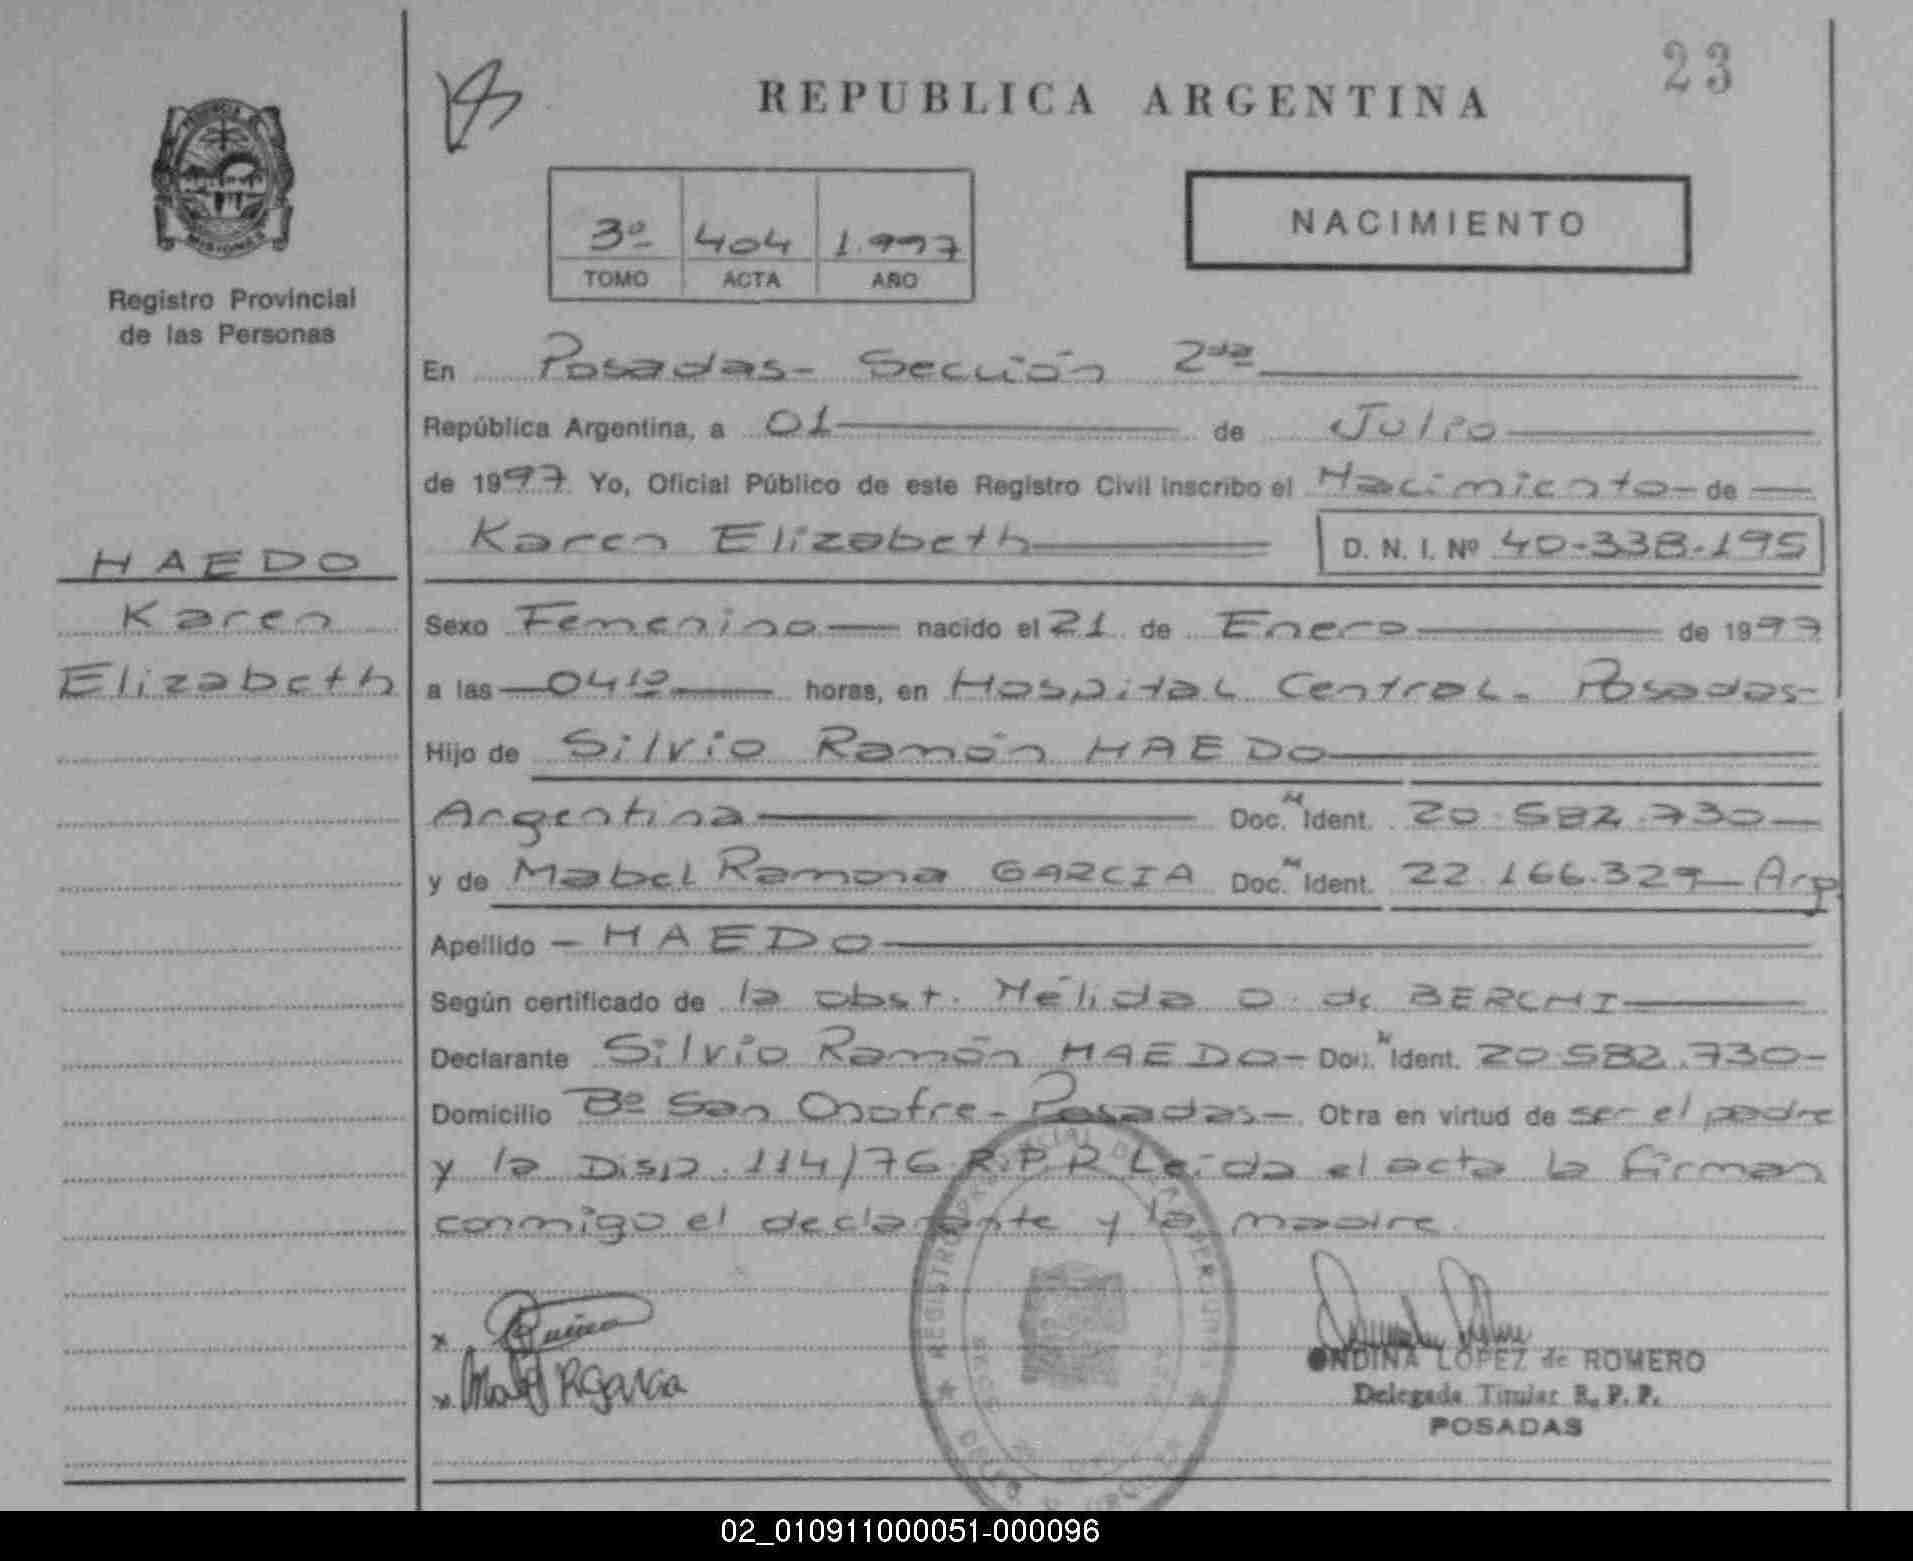 23
REPUBLICA ARGENTINA
3º 404 1.997
TOMO ACTA AÑO
NACIMIENTO
PROVINCIA
MISIONES
Registro Provincial
de las Personas
HAEDO
Karen
Elizabeth
En Posadas- Sección 2da
República Argentina, a 01 de Julio
de 1997 Yo, Oficial Público de este Registro Civil inscribo el Nacimiento de
Karen Elizabeth D. N. I. Nº 40-338-195
Sexo Femenino nacido el 21 de Enero de 1997
a las 04 10 horas, en Hospital Central- Posadas-
Hijo de Silvio Ramón HAEDO
Argentina Doc. N Ident. 20.582.730
y de Mabel Ramona GARCIA Doc. N Ident. 22.166.329 Arg
Apellido HAEDO
Según certificado de la obst. Nélida O. de BERCHI
Declarante Silvio Ramón HAEDO- Doc. N Ident. 20.582.730-
Domicilio Bº San Onofre- Posadas- Obra en virtud de ser el padre
y la Disp. 114/76 R.P.P. Leida el acta la firman
conmigo el declarante y la madre.
REGISTRO PROVINCIAL DE LAS PERSONAS
x
x Mabel R Garcia
ONDINA LOPEZ de ROMERO
Delegada Titular R. P. P.
POSADAS
02_010911000051-000096